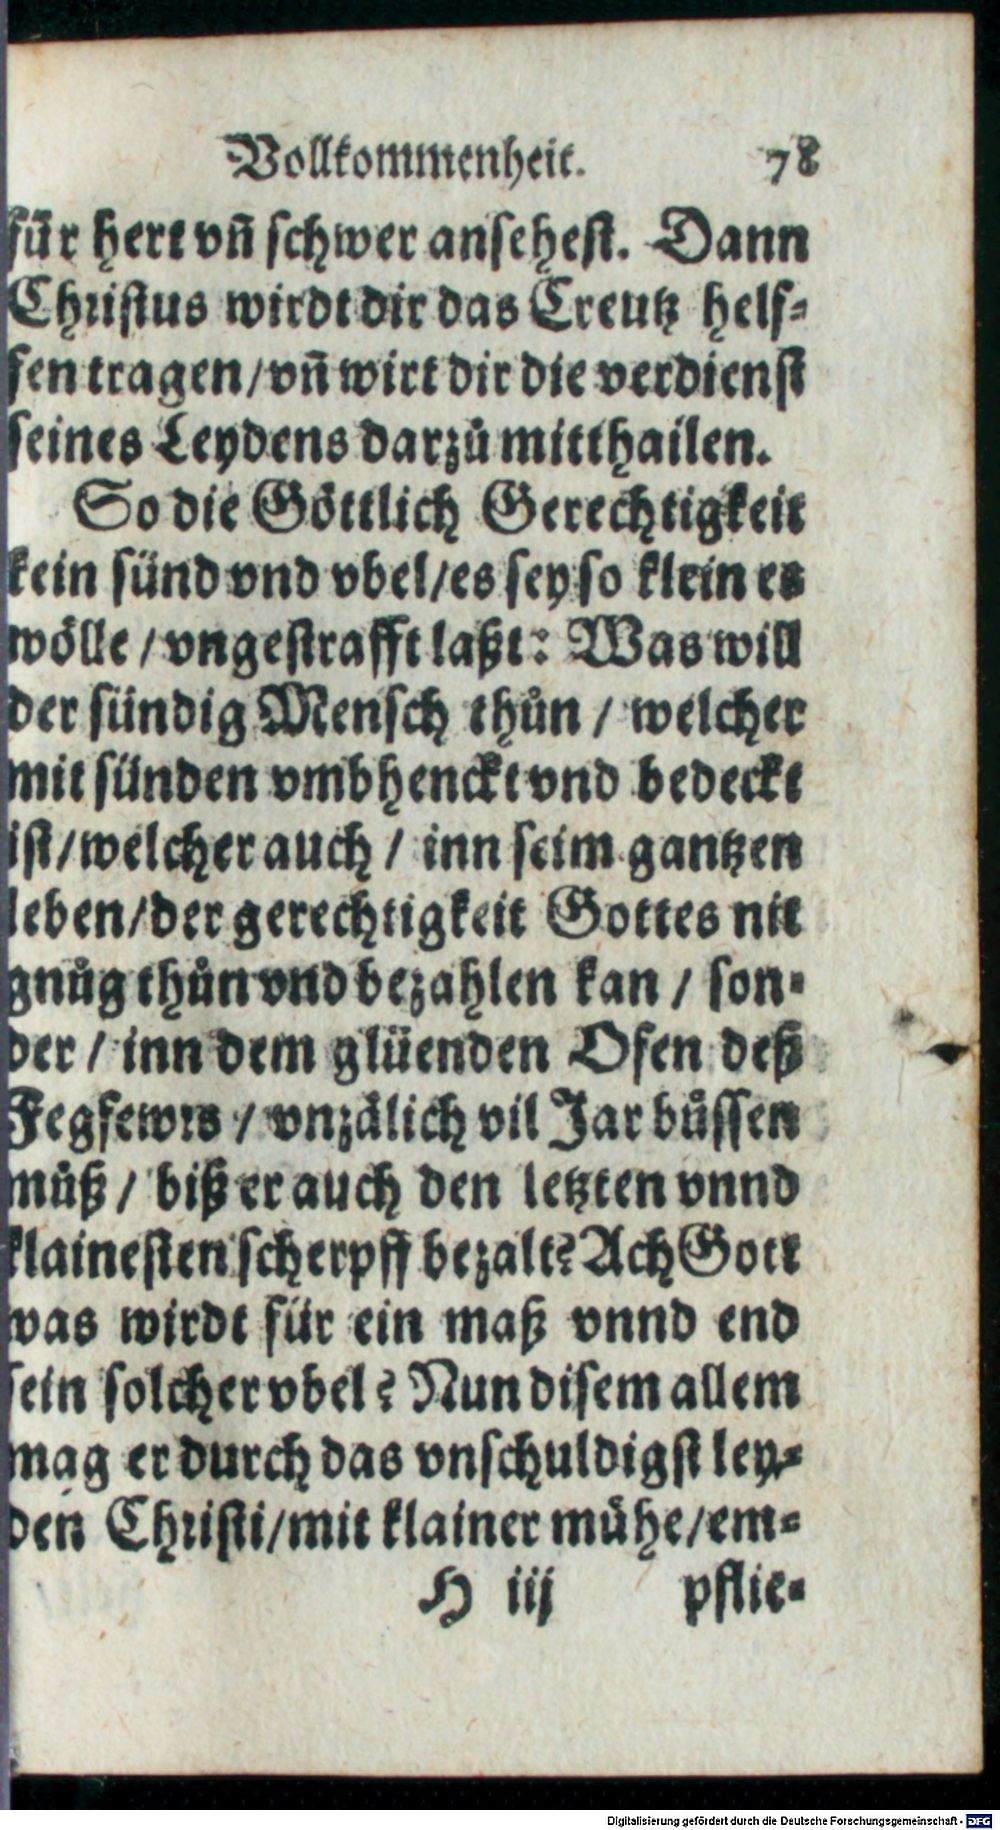 Vollkommenheit. 78
für hert vn̄ schwer ansehest. Dann
Christus wirdt dir das Creutz helf-
fen tragen/vn̄ wirt dir die verdienst
seines Leydens darzů mitthailen.
So die Göttlich Gerechtigkeit
kein sünd vnd vbel/es sey so klein es
wölle/vngestrafft laßt: Was will
der sündig Mensch thůn/welcher
mit sünden vmbhenckt vnd bedeckt
ist/welcher auch/inn seim gantzen
leben/der gerechtigkeit Gottes nit
gnůg thůn vnd bezahlen kan/son-
der/inn dem glüenden Ofen deß
Fegfewrs/vnzälich vil Jar bůssen
můß/biß er auch den letzten vnnd
klainesten scherpff bezalt? Ach Gott
was wirdt für ein maß vnnd end
sein solcher vbel? Nun disem allem
mag er durch das vnschuldigst ley-
den Christi/mit klainer mühe/em-
H iij pflie-
Digitalisierung gefördert durch die Deutsche Forschungsgemeinschaft - DFG